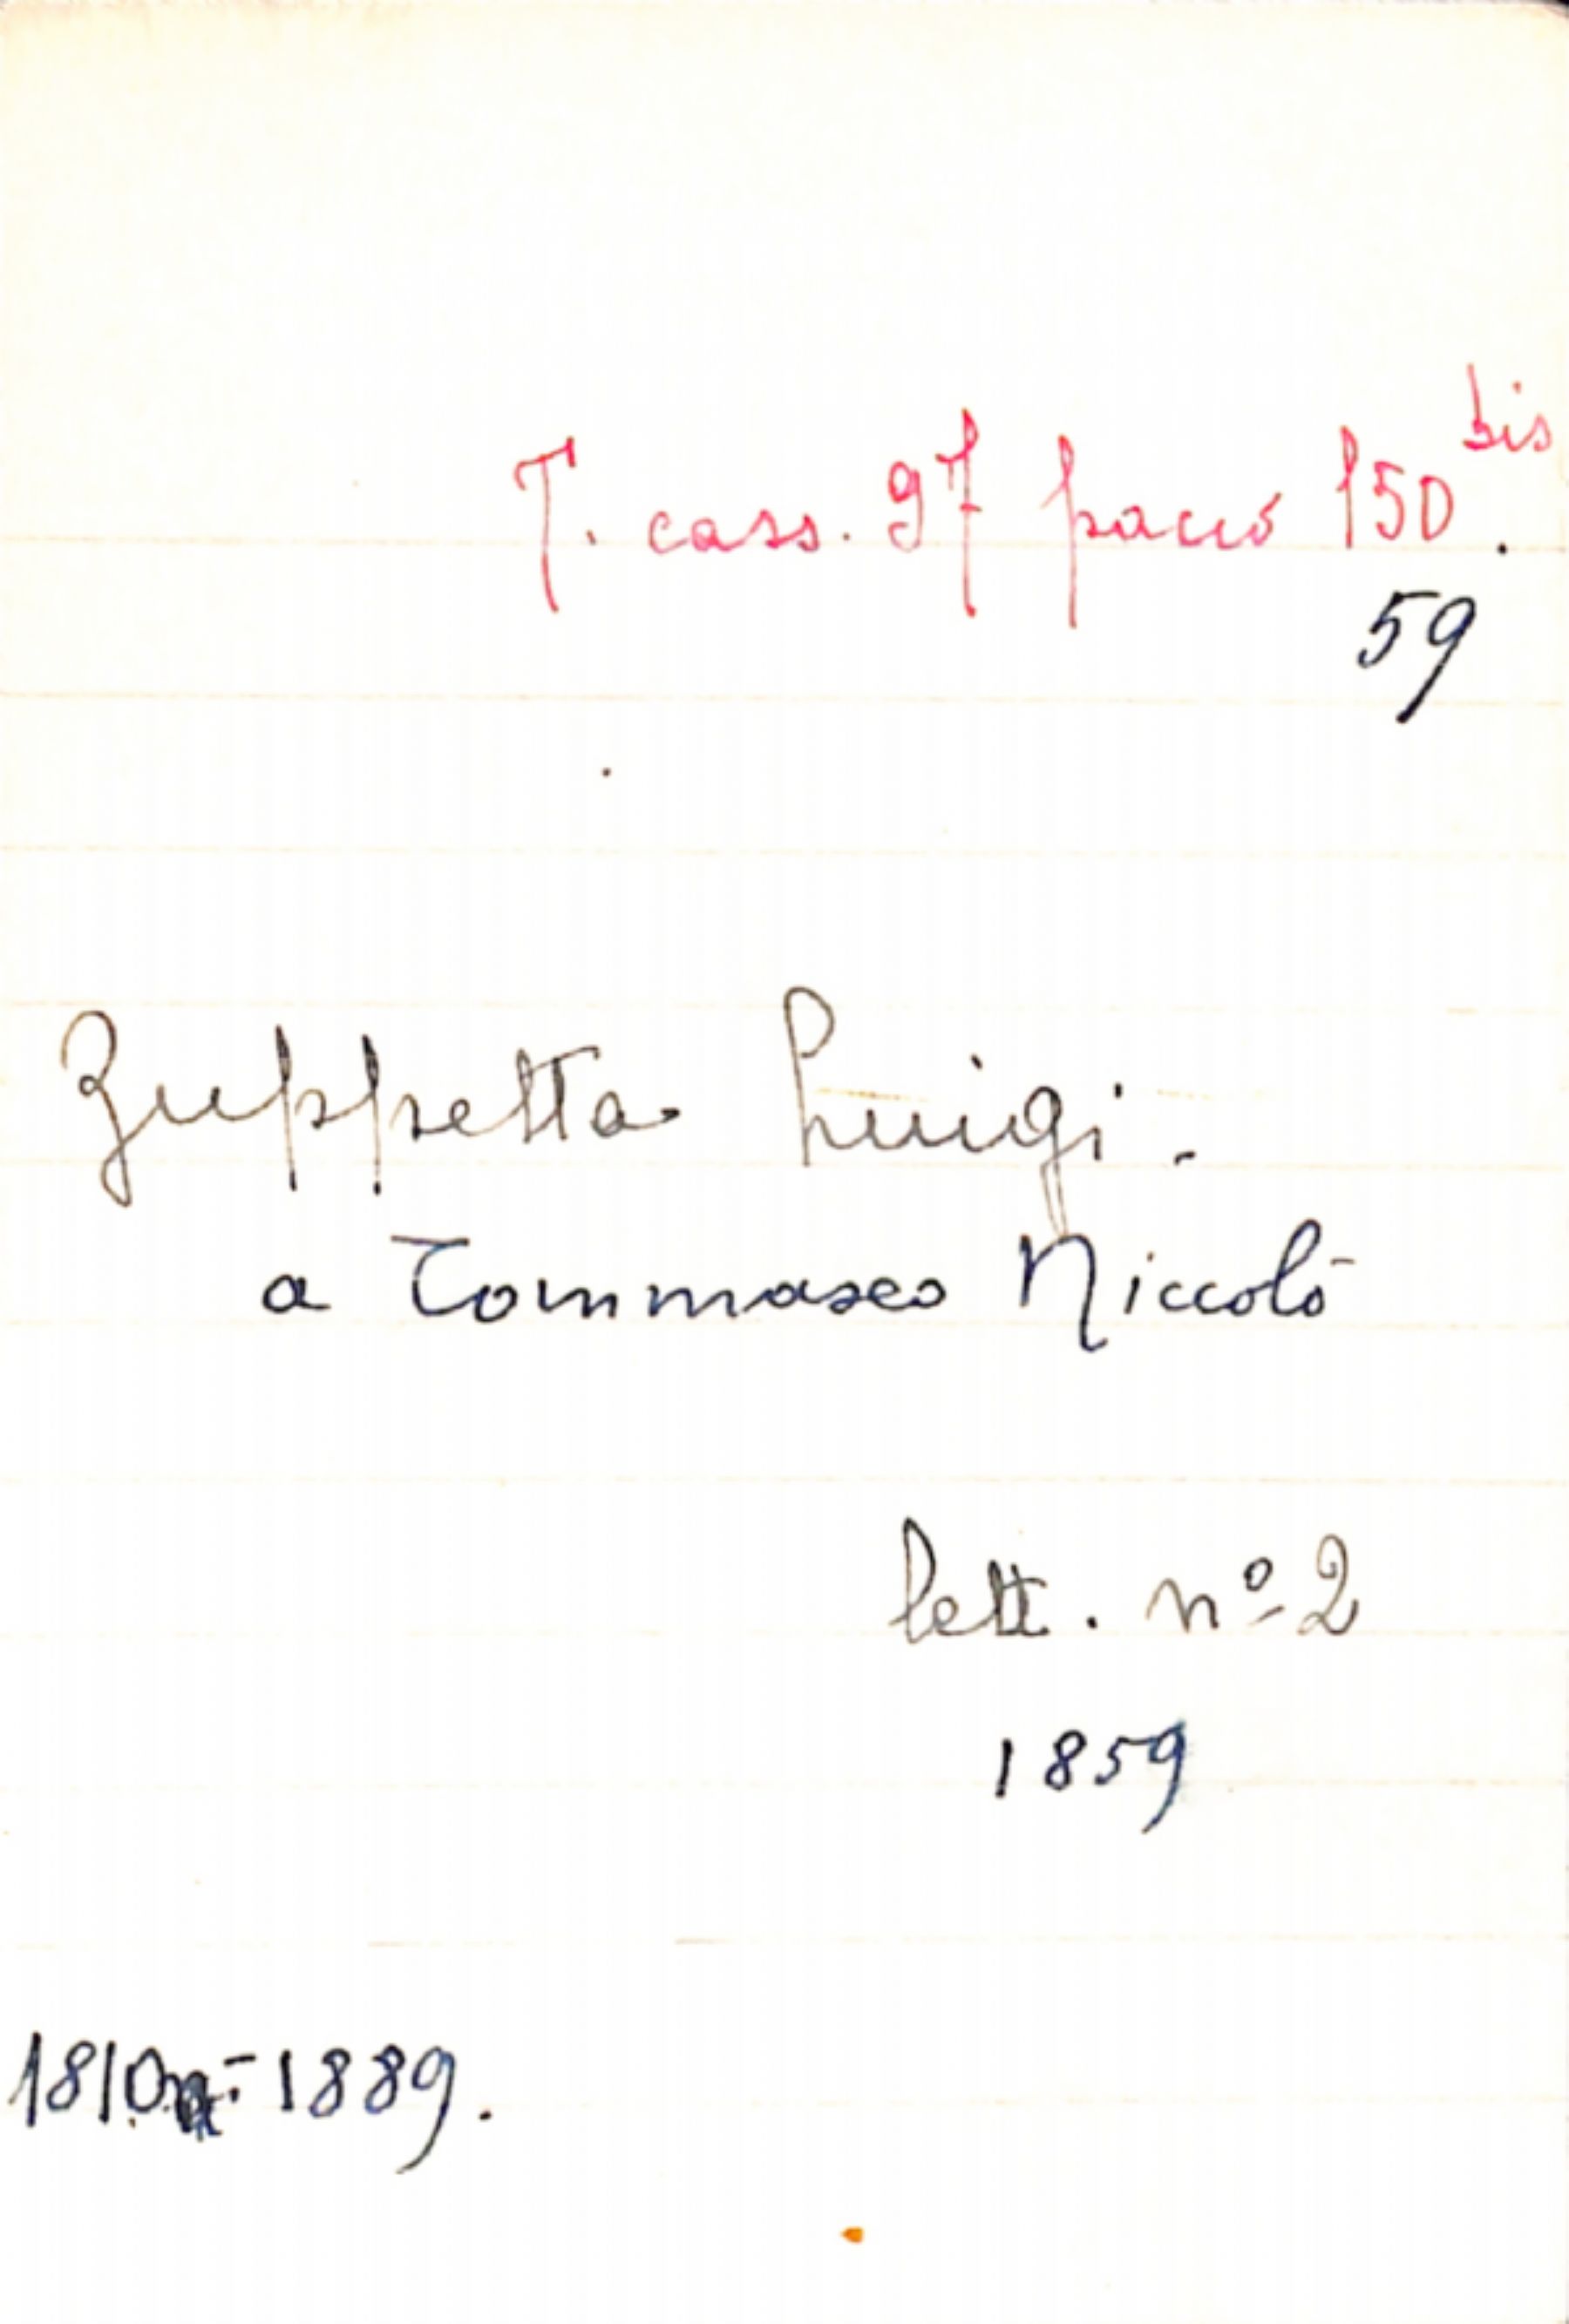 T. cass. 97 pacco 150 bis.
59
Zuppetta Luigi.
a Tommaseo Niccolò
lett. nº 2
1859
1810 - 1889.